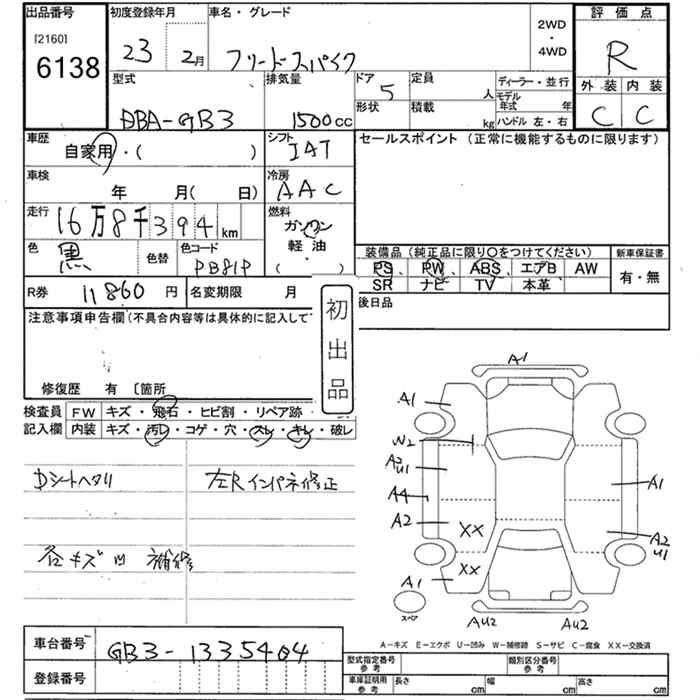 出品番号
[2160]
6138
初度登録年月
23 2月
車名・グレード
フリードスパイク
2WD
・
4WD
評価点
R
外装 内装
C C
型式
DBA-GB3
排気量
1500cc
ドア
5
定員
人
形状
積載
kg
ディーラー・並行
モデル年式 年
ハンドル 左・右
車歴
自家用・( )
シフト
IAT
セールスポイント (正常に機能するものに限ります)
車検
年 月( 日)
冷房
AAC
走行
16万8千394km
燃料
ガソリン
軽油
( )
色
黒
色替
色コード
PB81P
装備品 (純正品に限り○をつけてください)
PS、PW、ABS、エアB AW
SR ナビ TV 本革
新車保証書
有・無
R券 11860円
名変期限 月
初出品
後日品
注意事項申告欄(不具合内容等は具体的に記入して
修復歴 有 〔箇所
検査員記入欄
FW キズ・飛石・ヒビ割・リペア跡・
内装 キズ・汚レ・コゲ・穴・スレ・キレ・破レ
Dシートヘタリ
左Rインパネ修正
各キズ凹 補修
A1
A1
W2
A2
U1
A4
A2
XX
XX
A1
A1
A2
U1
AU2
AU2
スペア
A-キズ E-エクボ U-凹み W-補修跡 S-サビ C-腐食 XX-交換済
車台番号 GB3-1335404
登録番号
型式指定番号参考
類別区分番号参考
車庫証明用参考 長さ cm 幅 cm 高さ cm